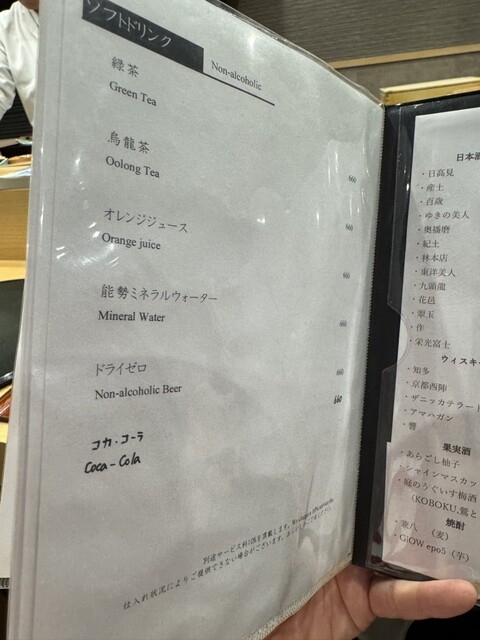 ソフトドリンク
Non-alcoholic
緑茶
Green Tea
660
烏龍茶
Oolong Tea
660
オレンジジュース
Orange juice
660
能勢ミネラルウォーター
Mineral Water
660
ドライゼロ
Non-alcoholic Beer
660
コカ・コーラ
Coca-Cola
660
別途サービス料10%を頂戴します。
仕入れ状況によりご提供できない場合がございます。
日本酒
・日高見
・産土
・百歳
・ゆきの美人
・奥播磨
・紀土
・林本店
・東洋美人
・九頭龍
・花邑
・翠玉
・作
・栄光富士
ウィスキー
・知多
・京都西陣
・ザニッカテラード
・アマハガン
・響
果実酒
・あらごし柚子
・シャインマスカッ
・庭のうぐいす梅酒
(KOBOKU,鶯と
焼酎
・兼八 (麦)
・GLOW epo5(芋)